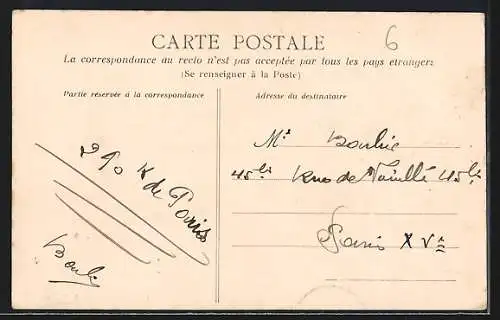 6
CARTE POSTALE
La correspondance au recto n'est pas acceptée par tous les pays étrangers
(Se renseigner à la Poste)
Partie réservée à la correspondance
Adresse du destinataire
Mr
45bis Rue de 45bis
Paris XVe
de Paris